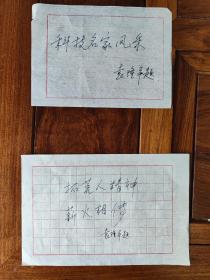 科技名家风采
袁隆平题
拓荒人精神
薪火相传
袁隆平题